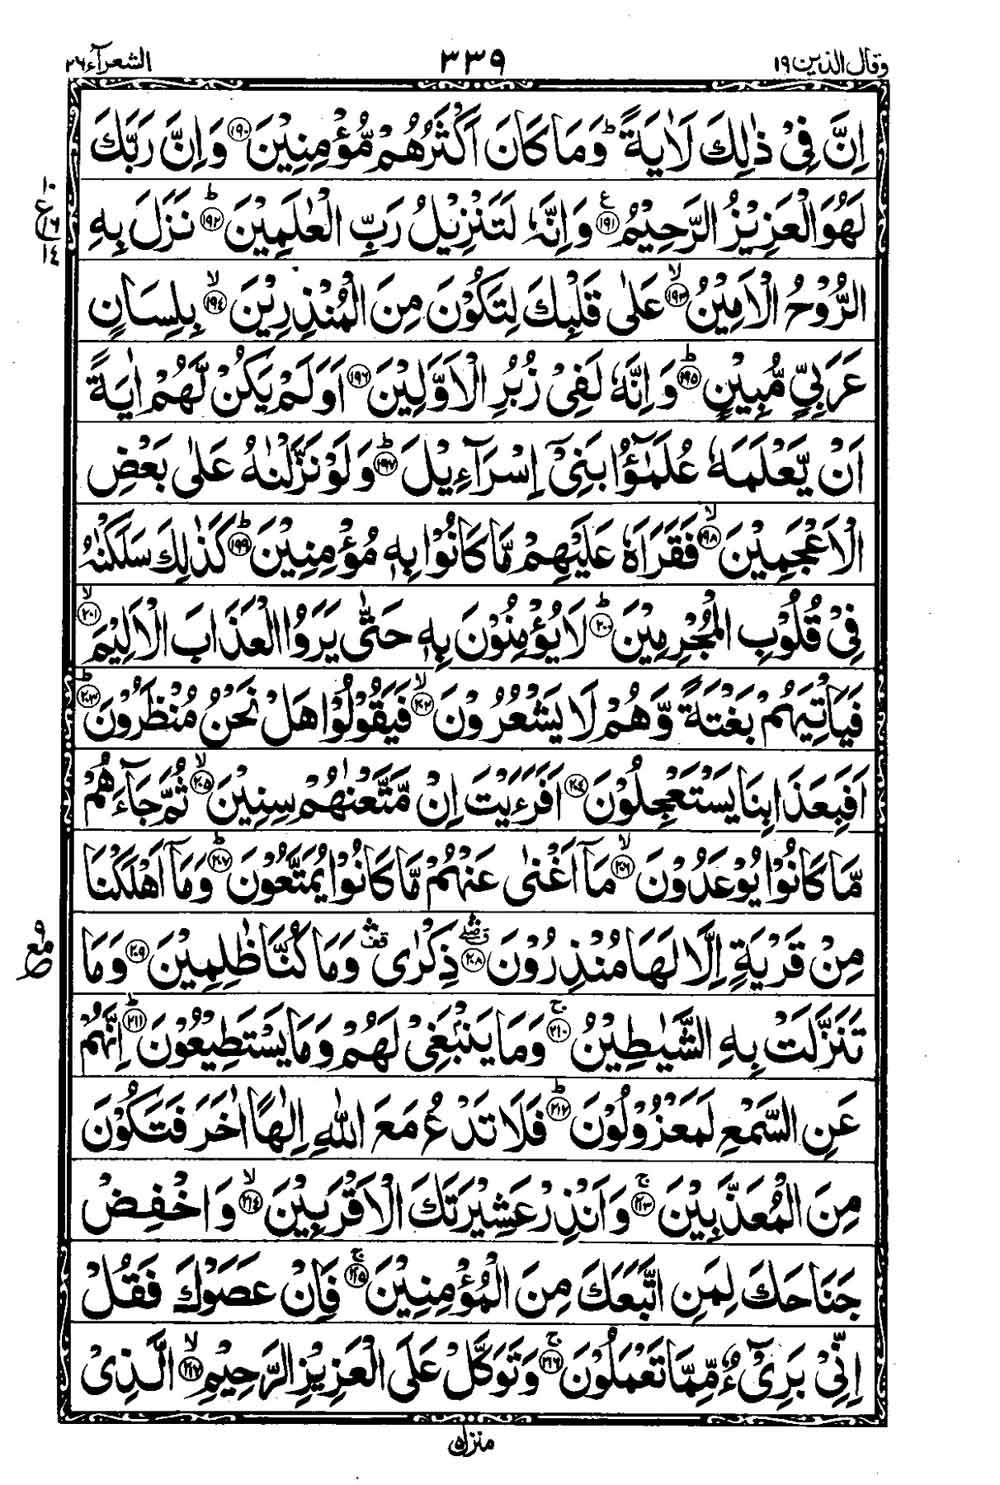 وقال الذین ۱۹ ۳۳۹ الشعرآء ۲۶
اِنَّ فِیْ ذٰلِكَ لَاٰیَةً ؕ وَمَا كَانَ اَكْثَرُهُمْ مُّؤْمِنِیْنَ ﴿۱۹۰﴾ وَاِنَّ رَبَّكَ
لَهُوَ الْعَزِیْزُ الرَّحِیْمُ ﴿۱۹۱﴾ ع وَاِنَّهٗ لَتَنْزِیْلُ رَبِّ الْعٰلَمِیْنَ ﴿۱۹۲﴾ ؕ نَزَلَ بِهِ
۱۰ ع ۱۶ ۱۴
الرُّوْحُ الْاَمِیْنُ ﴿۱۹۳﴾ ۙ عَلٰی قَلْبِكَ لِتَكُوْنَ مِنَ الْمُنْذِرِیْنَ ﴿۱۹۴﴾ ۙ بِلِسَانٍ
عَرَبِیٍّ مُّبِیْنٍ ﴿۱۹۵﴾ ؕ وَاِنَّهٗ لَفِیْ زُبُرِ الْاَوَّلِیْنَ ﴿۱۹۶﴾ اَوَلَمْ یَكُنْ لَّهُمْ اٰیَةً
اَنْ یَّعْلَمَهٗ عُلَمٰٓؤُا بَنِیْۤ اِسْرَآءِیْلَ ﴿۱۹۷﴾ ؕ وَلَوْ نَزَّلْنٰهُ عَلٰی بَعْضِ
الْاَعْجَمِیْنَ ﴿۱۹۸﴾ ۙ فَقَرَاَهٗ عَلَیْهِمْ مَّا كَانُوْا بِهٖ مُؤْمِنِیْنَ ﴿۱۹۹﴾ ؕ كَذٰلِكَ سَلَكْنٰهُ
فِیْ قُلُوْبِ الْمُجْرِمِیْنَ ﴿۲۰۰﴾ ؕ لَا یُؤْمِنُوْنَ بِهٖ حَتّٰی یَرَوُا الْعَذَابَ الْاَلِیْمَ ﴿۲۰۱﴾ ۙ
فَیَاْتِیَهُمْ بَغْتَةً وَّهُمْ لَا یَشْعُرُوْنَ ﴿۲۰۲﴾ ۙ فَیَقُوْلُوْا هَلْ نَحْنُ مُنْظَرُوْنَ ﴿۲۰۳﴾ ؕ
اَفَبِعَذَابِنَا یَسْتَعْجِلُوْنَ ﴿۲۰۴﴾ اَفَرَءَیْتَ اِنْ مَّتَّعْنٰهُمْ سِنِیْنَ ﴿۲۰۵﴾ ۙ ثُمَّ جَآءَهُمْ
مَّا كَانُوْا یُوْعَدُوْنَ ﴿۲۰۶﴾ ۙ مَاۤ اَغْنٰی عَنْهُمْ مَّا كَانُوْا یُمَتَّعُوْنَ ﴿۲۰۷﴾ ؕ وَمَاۤ اَهْلَكْنَا
مِنْ قَرْیَةٍ اِلَّا لَهَا مُنْذِرُوْنَ ﴿۲۰۸﴾ ذِكْرٰی وَمَا كُنَّا ظٰلِمِیْنَ ﴿۲۰۹﴾ وَمَا
تَنَزَّلَتْ بِهِ الشَّیٰطِیْنُ ﴿۲۱۰﴾ ۚ وَمَا یَنْۢبَغِیْ لَهُمْ وَمَا یَسْتَطِیْعُوْنَ ﴿۲۱۱﴾ ؕ اِنَّهُمْ
عَنِ السَّمْعِ لَمَعْزُوْلُوْنَ ﴿۲۱۲﴾ ؕ فَلَا تَدْعُ مَعَ اللّٰهِ اِلٰهًا اٰخَرَ فَتَكُوْنَ
مِنَ الْمُعَذَّبِیْنَ ﴿۲۱۳﴾ ۚ وَاَنْذِرْ عَشِیْرَتَكَ الْاَقْرَبِیْنَ ﴿۲۱۴﴾ ۙ وَاخْفِضْ
جَنَاحَكَ لِمَنِ اتَّبَعَكَ مِنَ الْمُؤْمِنِیْنَ ﴿۲۱۵﴾ ۚ فَاِنْ عَصَوْكَ فَقُلْ
اِنِّیْ بَرِیْٓءٌ مِّمَّا تَعْمَلُوْنَ ﴿۲۱۶﴾ ۚ وَتَوَكَّلْ عَلَی الْعَزِیْزِ الرَّحِیْمِ ﴿۲۱۷﴾ ۙ الَّذِیْ
منزل ۵